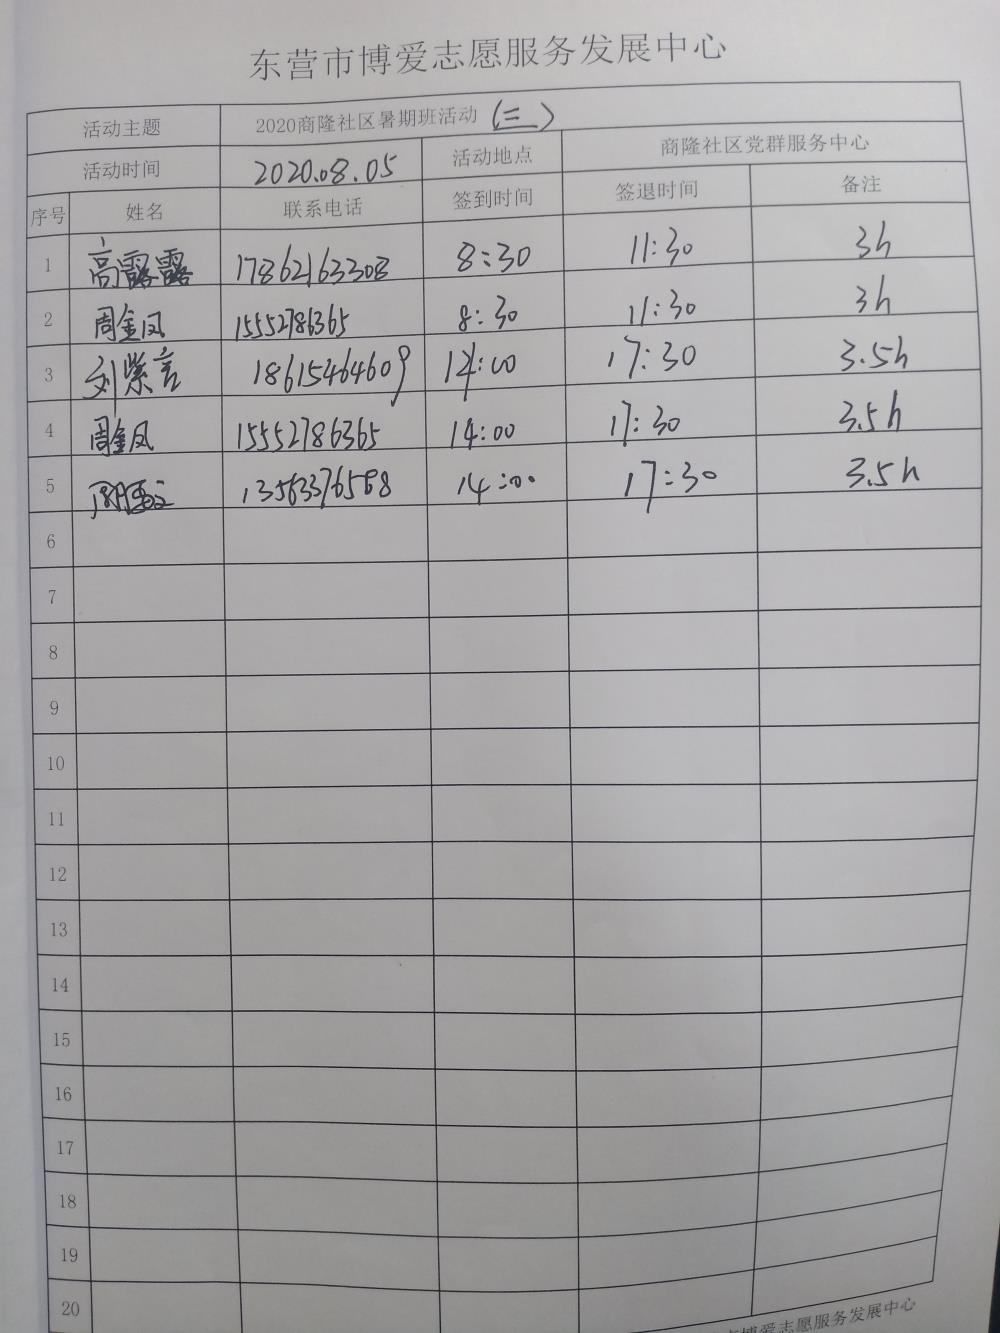 东营市博爱志愿服务发展中心
活动主题 2020商隆社区暑期班活动 (三)
活动时间 2020.08.05 活动地点 商隆社区党群服务中心
序号 姓名 联系电话 签到时间 签退时间 备注
1 高露露 17862163308 8:30 11:30 3h
2 周金凤 15552786365 8:30 11:30 3h
3 刘紫言 18615464609 14:00 17:30 3.5h
4 周金凤 15552786365 14:00 17:30 3.5h
5 13563376568 14:00 17:30 3.5h
6
7
8
9
10
11
12
13
14
15
16
17
18
19
20
市博爱志愿服务发展中心